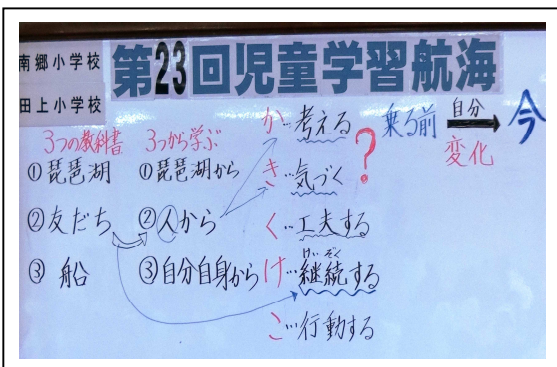 南郷小学校
田上小学校
第23回児童学習航海
3つの教科書
①琵琶湖
②友だち
③船
3つから学ぶ
①琵琶湖から
②人から
③自分自身から
か…考える
き…気づく
?
く…工夫する
けいぞく
け…継続する
こ…行動する
乗る前 自分 今
変化